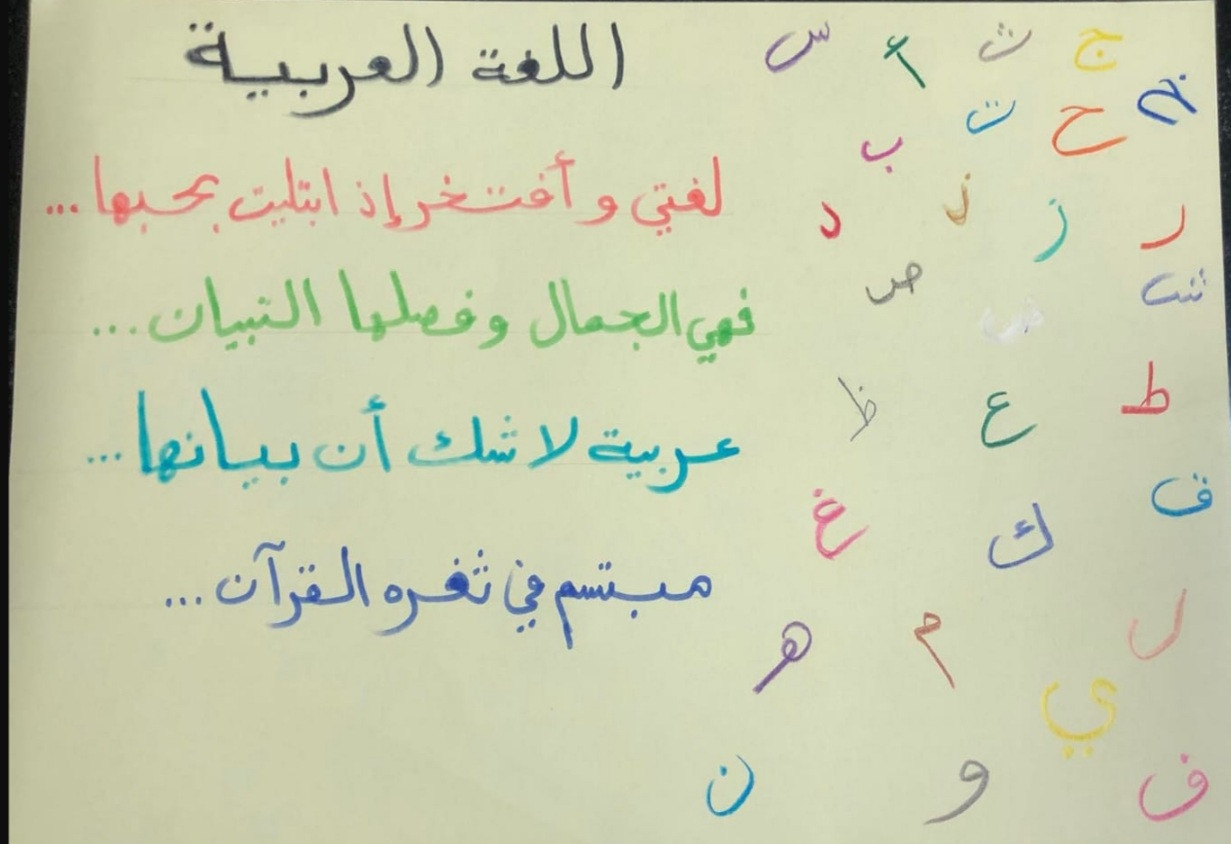 اللغة العربية
لغتي وأفتخر إذ ابتليت بحبها ...
فهي الجمال وفصلها التبيان ...
عربية لا شك أن بيانها ...
مبتسم في ثغره القرآن ...
ج ث أ س
خ ح ت ب
ر ز ذ د
ش ض ص
ط ع ظ
ق ك غ
ل م ه
ي
ف و ن